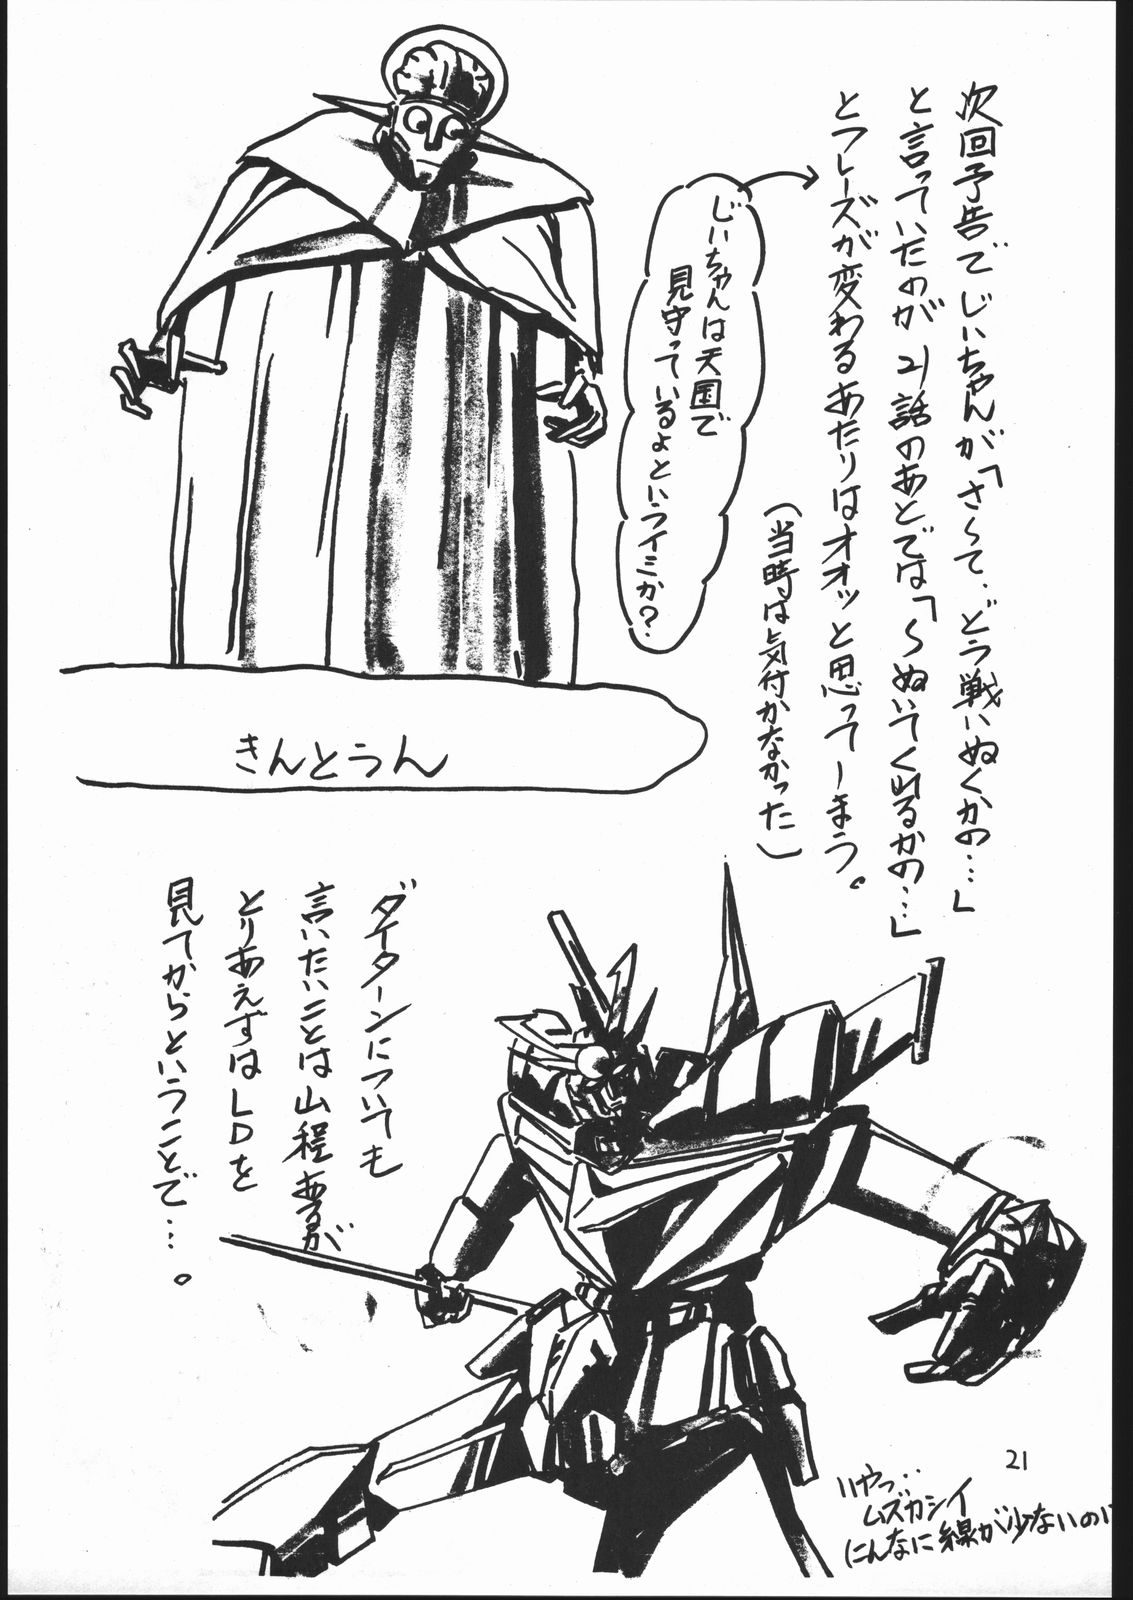 次回予告でじいちゃんが「さ～て、どう戦いぬくかの…」
と言っていたのが21話のあとでは「～ぬいてくれるかの…」
とフレーズが変わるあたりはオオッと思ってしまう。
(当時は気付かなかった)
じいちゃんは天国で
見守っているよというイミか?
きんとうん
ダイターンについても
言いたいことは山程あるが
とりあえずはLDを
見てからということで…。
いやっ…
ムズカシイ
こんなに線が少ないのに
21